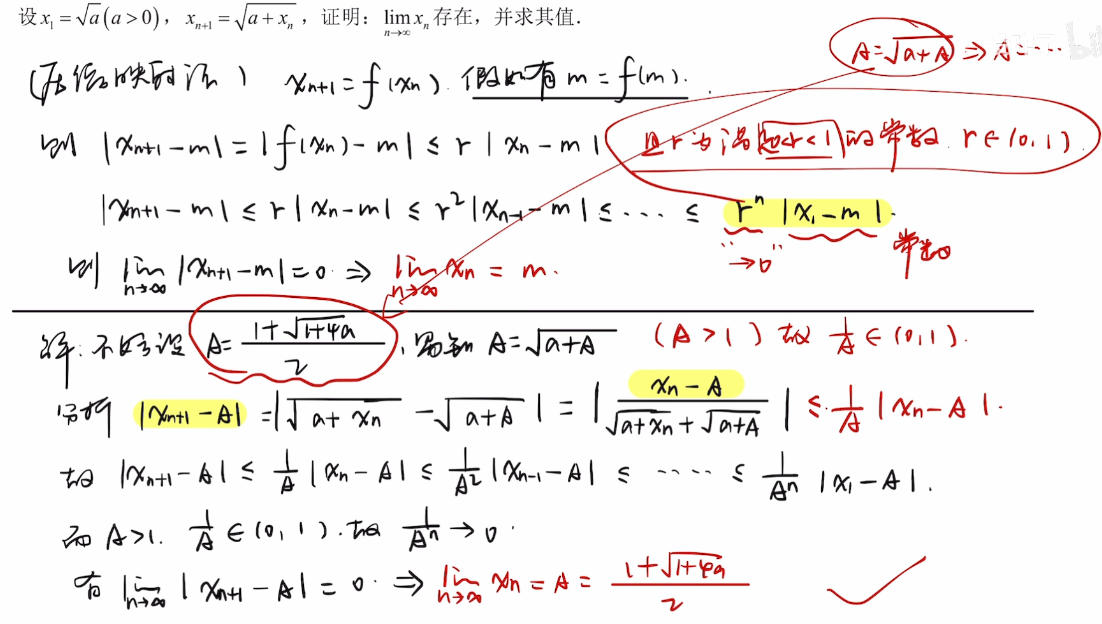 设 x₁ = √a (a > 0), xₙ₊₁ = √(a + xₙ), 证明: lim_{n→∞} xₙ 存在, 并求其值.
A = √(a+A) ⇒ A = ⋯
(压缩映射法) xₙ₊₁ = f(xₙ). 假如有 m = f(m).
则 |xₙ₊₁ − m| = |f(xₙ) − m| ≤ r |xₙ − m| 且 r 为满足 0<r<1 的常数. r ∈ (0, 1).
|xₙ₊₁ − m| ≤ r |xₙ − m| ≤ r² |xₙ₋₁ − m| ≤ ⋯ ≤ rⁿ |x₁ − m|.
"→0" 常数
则 lim_{n→∞} |xₙ₊₁ − m| = 0 ⇒ lim_{n→∞} xₙ = m.
解: 不妨设 A = (1 + √(1+4a))/2, 易知 A = √(a+A) (A > 1) 故 1/A ∈ (0, 1).
|xₙ₊₁ − A| = |√(a + xₙ) − √(a + A)| = |(xₙ − A)/(√(a+xₙ) + √(a+A))| ≤ 1/A |xₙ − A|.
故 |xₙ₊₁ − A| ≤ 1/A |xₙ − A| ≤ 1/A² |xₙ₋₁ − A| ≤ ⋯⋯ ≤ 1/Aⁿ |x₁ − A|.
而 A > 1. 1/A ∈ (0, 1). 故 1/Aⁿ → 0.
有 lim_{n→∞} |xₙ₊₁ − A| = 0 ⇒ lim_{n→∞} xₙ = A = (1 + √(1+4a))/2